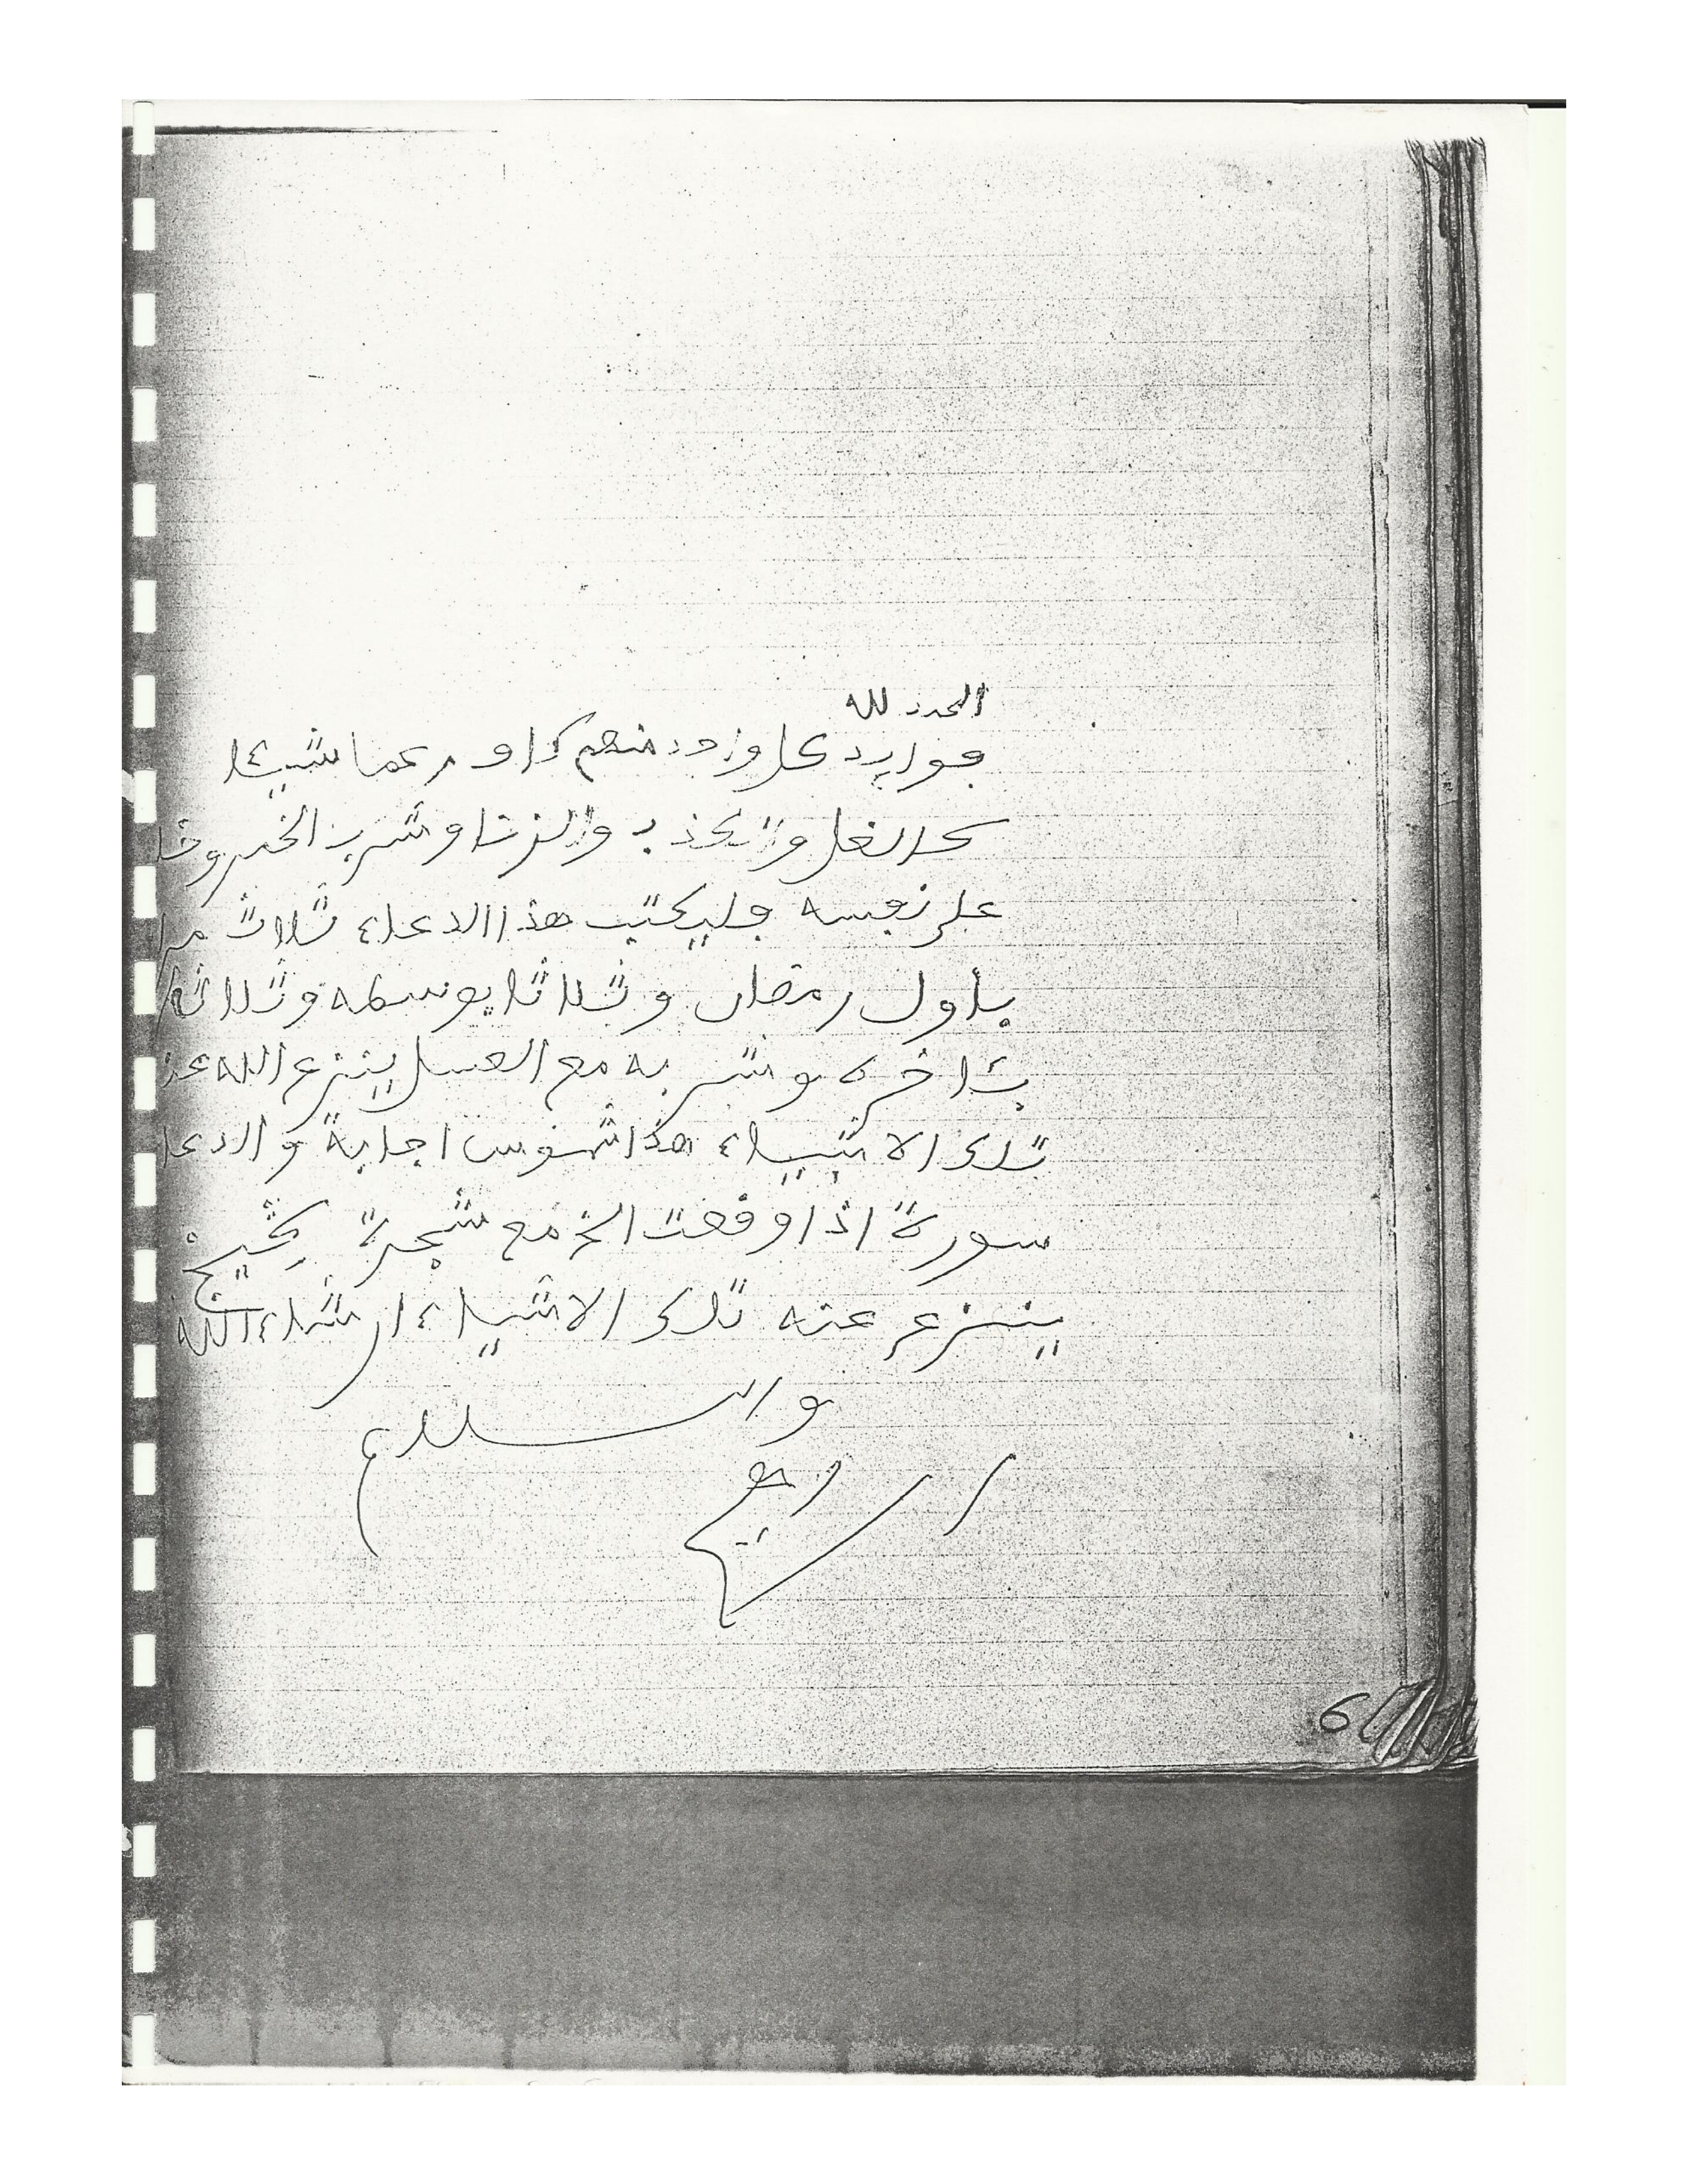 الحمد لله
فوايد كل وزد منهم كا و عما شيئا
كالغل والكذب والزنا وشرب الخمر وخا
على نفسه فليكتب هذا الدعاء ثلاث مرا
بأول رمضان وثلاثا بوسطه وثلاثا
بئاخره وشربه مع العسل ينزع الله عنه
تلك الاشياء هذا شموس اجابة والدعا
سورة اذا وقعت الخ مع شجرة
ينزع عنه تلك الاشياء ان شاء الله
والسلام
6